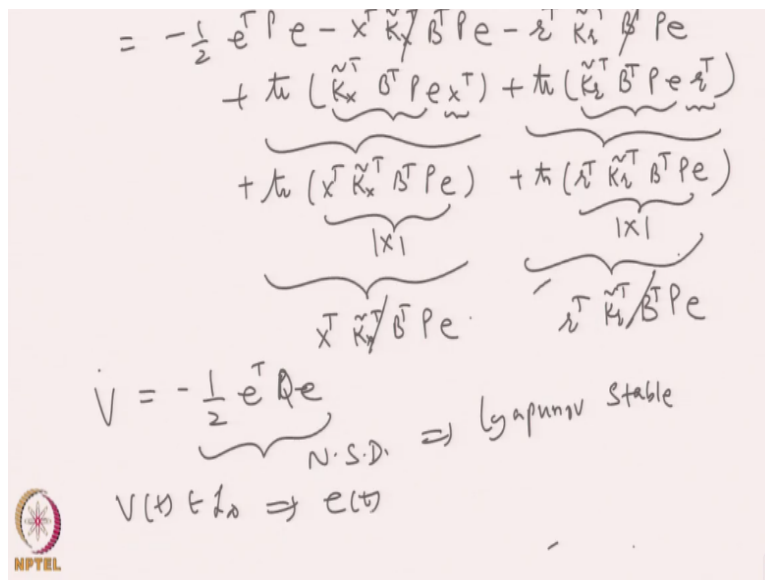 = - 1/2 eᵀ P e - xᵀ K̃ₓᵀ Bᵀ P e - rᵀ K̃ᵣᵀ Bᵀ P e
+ tr (K̃ₓᵀ Bᵀ P e xᵀ) + tr (K̃ᵣᵀ Bᵀ P e rᵀ)
+ tr (xᵀ K̃ₓᵀ Bᵀ P e) + tr (rᵀ K̃ᵣᵀ Bᵀ P e)
1×1 1×1
xᵀ K̃ₓᵀ Bᵀ P e rᵀ K̃ᵣᵀ Bᵀ P e
V̇ = - 1/2 eᵀ Q e
N.S.D. ⇒ Lyapunov Stable
V(t) ∈ L∞ ⇒ e(t)
NPTEL